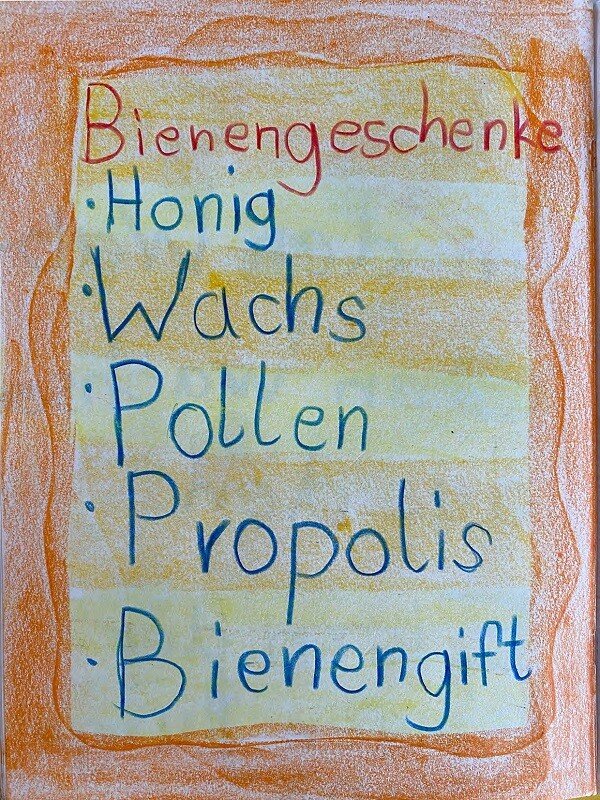 Bienengeschenke
· Honig
· Wachs
· Pollen
· Propolis
· Bienengift